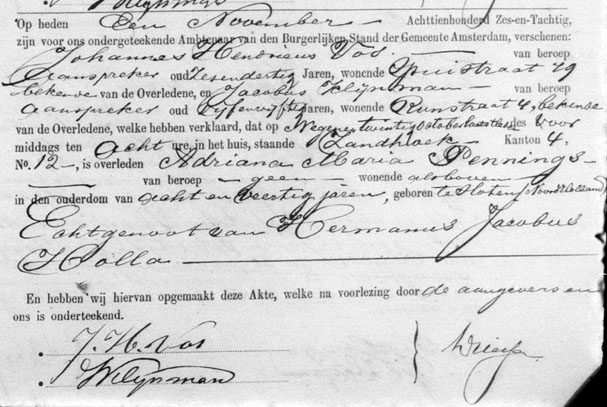 Op heden Een November — Achttienhonderd Zes-en-Tachtig,
zijn voor ons ondergeteekende Ambtenaar van den Burgerlijken Stand der Gemeente Amsterdam, verschenen:
Johannes Hendricus Vos — van beroep
Aanspreker oud Zesendertig Jaren, wonende Spuistraat 79
bekende van de Overledene, en Jacobus Wijnman — van beroep
aanspreker oud Vijfenvijftig Jaren, wonende Runstraat 4, bekende
van de Overledene, welke hebben verklaard, dat op Negen en twintig October laatstleden des Voor
middags ten acht ure, in het huis, staande Zandhoek — Kanton 4,
No. 12 —, is overleden Adriana Maria Pennings —
— van beroep — geen — wonende alsboven
in den ouderdom van acht en veertig jaren, geboren te Sloten Noordholland
Echtgenoot van Hermanus Jacobus
Holla —
En hebben wij hiervan opgemaakt deze Akte, welke na voorlezing door de aangevers en
ons is onderteekend.
J. H. Vos
J Wijnman